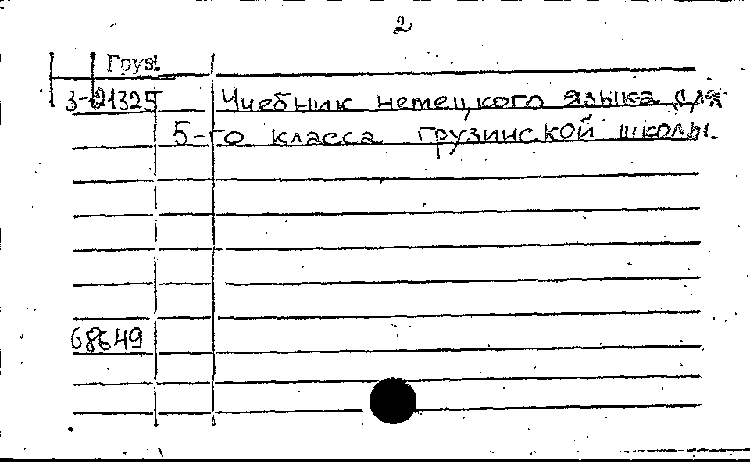 2
Груз.
3-21325 Учебник немецкого языка для
5-го класса грузинской школы.
68649